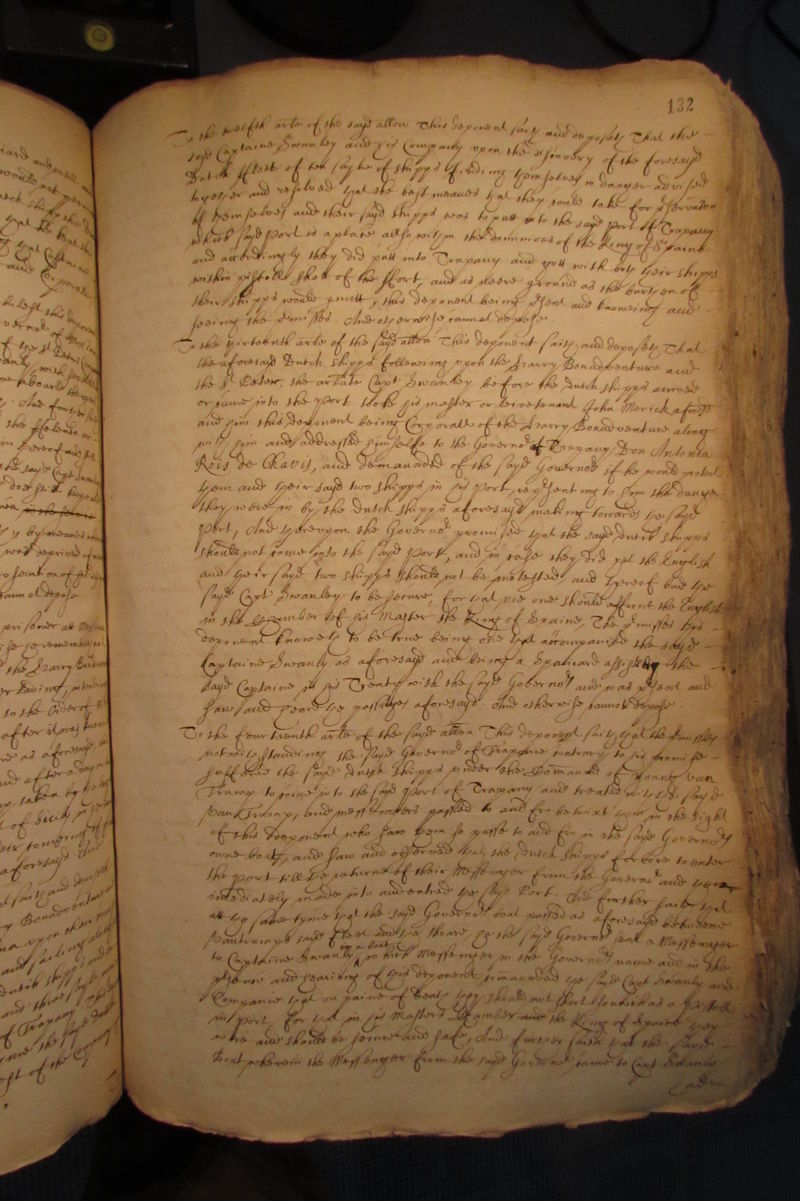 132
To the twelfth arle of the sayd allon This deponent saith and deposeth That the
sayd Captaine Swanley and his Company upon the discovery of the foresayd
Dutch ffleet of ten sayle of shipps finding themselves in danger advised
together and resolved that the best meanes that they could take for pservation
of themselves and their sayd shipps was to putt into the sayd Port of Trapany
which sayd Port is a place allso within the dominions of the King of Spaine
and accordingly they did putt into Trapany and gott with both their shipps
within pistoll shott of the ffort, and as neere ground as the burthen of
their shipps would pmitt, this deponent being psent and knoweing and
seeing the pmisses. And otherwise cannot depose.
To the thirteenth arle of the sayd allon This deponent saith and deposeth That
the aforesayd Dutch shipps following upon the Harry Bonadventure and
the St Peter, the arlate Capt Swanley before the dutch shipps arrived
or came into the Port tooke his master or Leivetenant John Morick
and him this deponent being Corporall of the Harry Bonadventure along
with him and addressed himselfe to the Governor of Trapany Don Antonia
Rois de Chavis, and demaunded of the sayd Governor if he would protect
them and their sayd two shipps in his port, repsenting to him the danger
they were in by the dutch shipps aforesayd making towards the sayd
Port; And thereupon the Governor promised that the sayd dutch shipps
should not come into the sayd Port, and in case they did yet the English
and their sayd two shipps should not be molested and thereof bad the
sayd Capt Swanley to be secure, for that noe one should affront the English
in the Chamber of his Master the King of Spaine The pmisses this
deponent knoweth to be true being one that accompanied the sayd
Captaine Swanly as aforesayd and being a Spaniard assisting the
sayd Captaine in his Treaty with the sayd Gobernor and was psent and
saw and heard the passages aforesayd. And otherwise cannot depose.
To the fourteenth arle of the sayd allon This deponent saith that the
notwithstanding the sayd Governor of Trapanie contrary to his promise
suffered the sayd dutch shipps under the Comaund of Yoang van
Trump to come into the sayd Port of Trapany and treated with the sayd
van Trump, and messengers passed to and fro betwixt them in the sight
of this deponent who saw them so passe to and fro in the sayd Governors
owne boat, and saw and observed that the dutch shipps forbore to enter
the Port till the returne of their Messenger from the Governor and then
imediately made into and entred the sayd Port. And further saith that
att the same tyme that the sayd Governors boat passed as aforesayd betweene
vantrumps sayd fleet and the shoare, he the sayd Governor sent a Messenger
in a boat
to Captaine Swanly, which Messenger in the Governors name and in the
psence and heareing of this deponent comaunded the sayd Capt Swanly and
Companie that on paine of death they should not shoot so much as a
in port, for that in his Masters Chamber the King of Spaine they
were and should be secure and safe, And further saith that the sayd
boat wherein the Messenger from the sayd Governor came to Capt Swanly
and